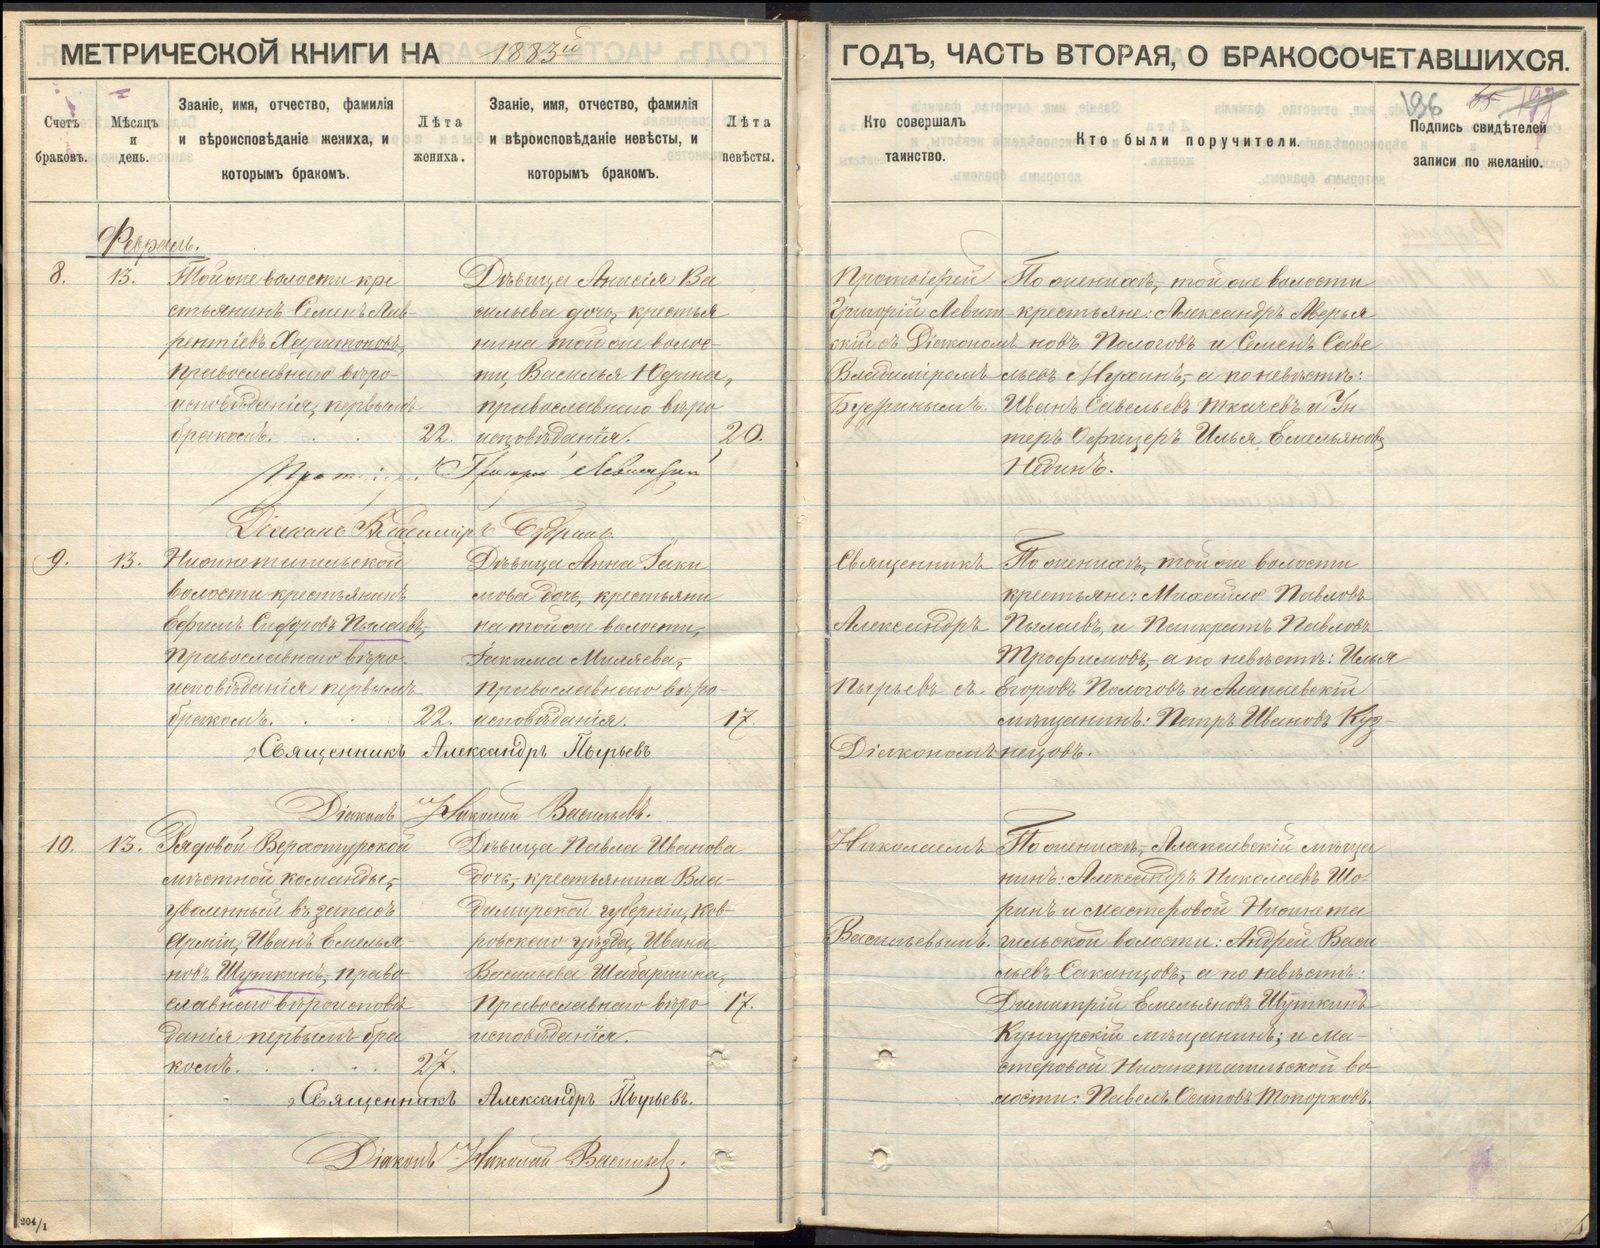 МЕТРИЧЕСКОЙ КНИГИ НА 1883й ГОДЪ, ЧАСТЬ ВТОРАЯ, О БРАКОСОЧЕТАВШИХСЯ.
196
Счетъ браковъ.
Мѣсяцъ и день.
Званіе, имя, отчество, фамилія
и вѣроисповѣданіе жениха, и
которымъ бракомъ.
Лѣта жениха.
Званіе, имя, отчество, фамилія
и вѣроисповѣданіе невѣсты, и
которымъ бракомъ.
Лѣта невѣсты.
Кто совершалъ
таинство.
Кто были поручители.
Подпись свидѣтелей
записи по желанію.
Февраль.
8.
13.
Той же волости кре
стьянинъ Семенъ Лав-
рентіевъ Харитоновъ,
православнаго вѣро-
исповѣданія, первымъ
бракомъ. 22.
Дѣвица Анисія Ва
сильева дочь, крестья
нина той же волос-
ти, Василья Юдина,
православнаго вѣро
исповѣданія. 20.
Протоіерей
Григорій Левит-
скій съ Діакономъ
Владиміромъ
По женихѣ, той же волости
крестьяне: Александръ Аверья
новъ Пологовъ и Семенъ Саве
льевъ Мухинъ, а по невѣстѣ:
Иванъ Савельевъ Ткачевъ и Ун
теръ Офицеръ Илья Емельяновъ
Протоіерей Григорій Левитскій
Діаконъ Владиміръ
9.
13.
Нижнетагильской
волости крестьянинъ
Ефимъ Сидоровъ Пылаевъ,
Православнаго вѣро-
исповѣданія первымъ
бракомъ. 22.
Дѣвица Анна Іаки
мова дочь, крестьяни
на той же волости,
Іакима Миляева,
Православнаго вѣро
исповѣданія. 17.
Священникъ
Александръ
Пырьевъ съ
Діакономъ
По женихѣ, той же волости
крестьяне: Михайло Павловъ
Пылаевъ, и Панкратъ Павловъ
Трофимовъ, а по невѣстѣ: Илья
Егоровъ Пологовъ и Алапаевскій
мѣщанинъ: Петръ Ивановъ Куз-
нецовъ.
Священникъ Александръ Пырьевъ
Діаконъ Николай Васильевъ.
10.
13.
Рядовой Верхотурской
мѣстной команды,
уволенный въ запасъ
Арміи, Иванъ Емелья
новъ Шуткинъ, право
славнаго вѣроисповѣ
данія первымъ бра
комъ. 27.
Дѣвица Павла Иванова
дочь, крестьянина Вла-
димирской губерніи, Ков-
ровскаго уѣзда, Ивана
Васильева Шабаршина,
Православнаго вѣро 17.
исповѣданія.
Николаемъ
Васильевымъ.
По женихѣ, Алапаевскій мѣща
нинъ: Александръ Николаевъ Шо-
ринъ и мастеровой Нижнета
гильской волости: Андрей Васи-
льевъ Саканцовъ, а по невѣстѣ:
Димитрій Емельяновъ Шуткинъ
Кунгурскій мѣщанинъ; и ма-
стеровой Нижнетагильской во-
лости: Павелъ Осиповъ Топорковъ.
Священникъ Александръ Пырьевъ.
Діаконъ Николай Васильевъ.
204/1